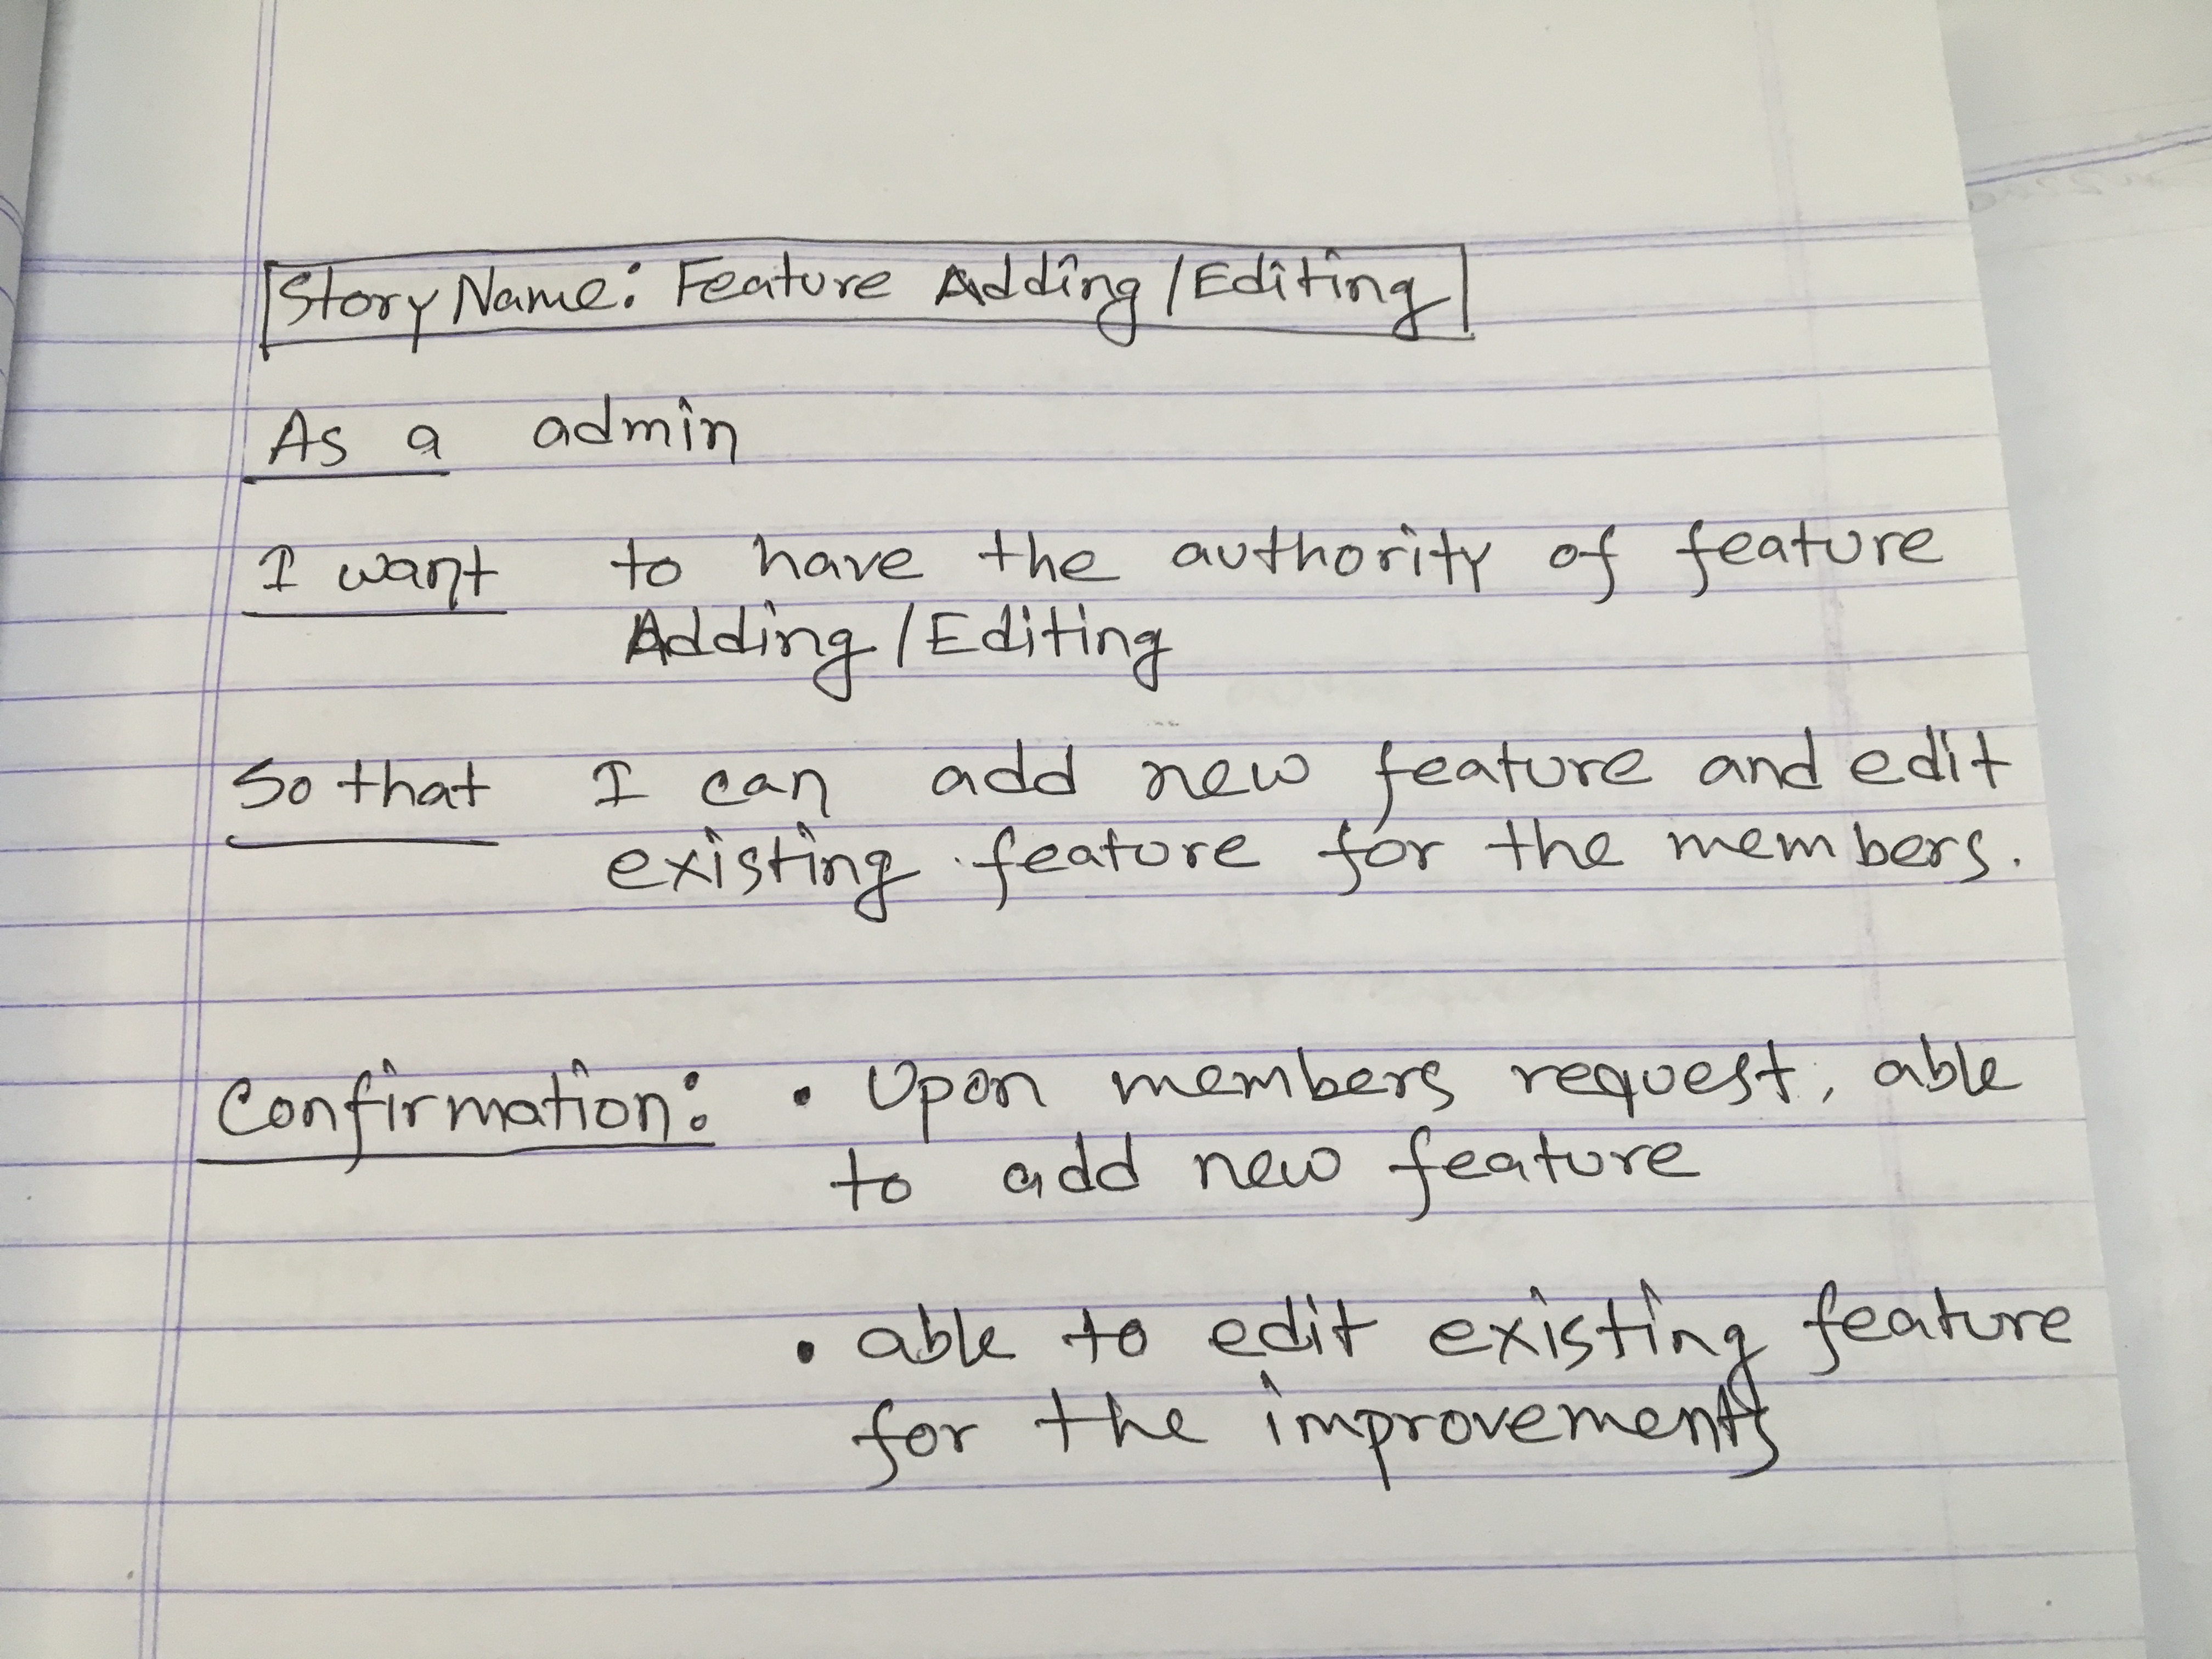 Story Name: Feature Adding/Editing
As a admin
I want to have the authority of feature
Adding/Editing
So that I can add new feature and edit
existing feature for the members.
Confirmation: • Upon members request, able
to add new feature
• able to edit existing feature
for the improvements